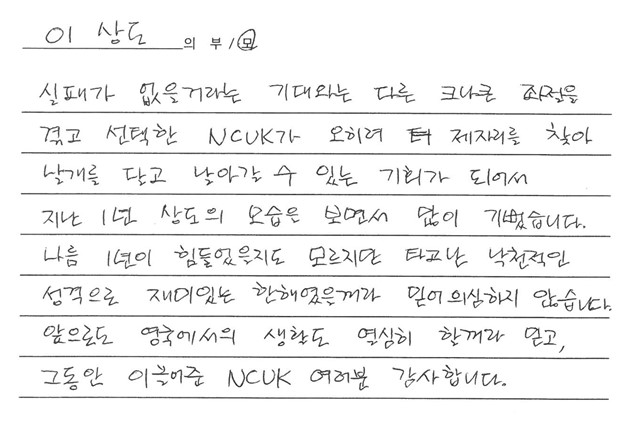 이 상도 의 부 / 모
실패가 없을거라는 기대와는 다른 크나큰 좌절을
겪고 선택한 NCUK가 오히려 제자리를 찾아
날개를 달고 날아갈 수 있는 기회가 되어서
지난 1년 상도의 모습은 보면서 많이 기뻤습니다.
나름 1년이 힘들었을지도 모르지만 타고난 낙천적인
성격으로 재미있는 한해였을꺼라 믿어 의심하지 않습니다.
앞으로도 영국에서의 생활도 열심히 할꺼라 믿고,
그동안 이끌어준 NCUK 여러분 감사합니다.